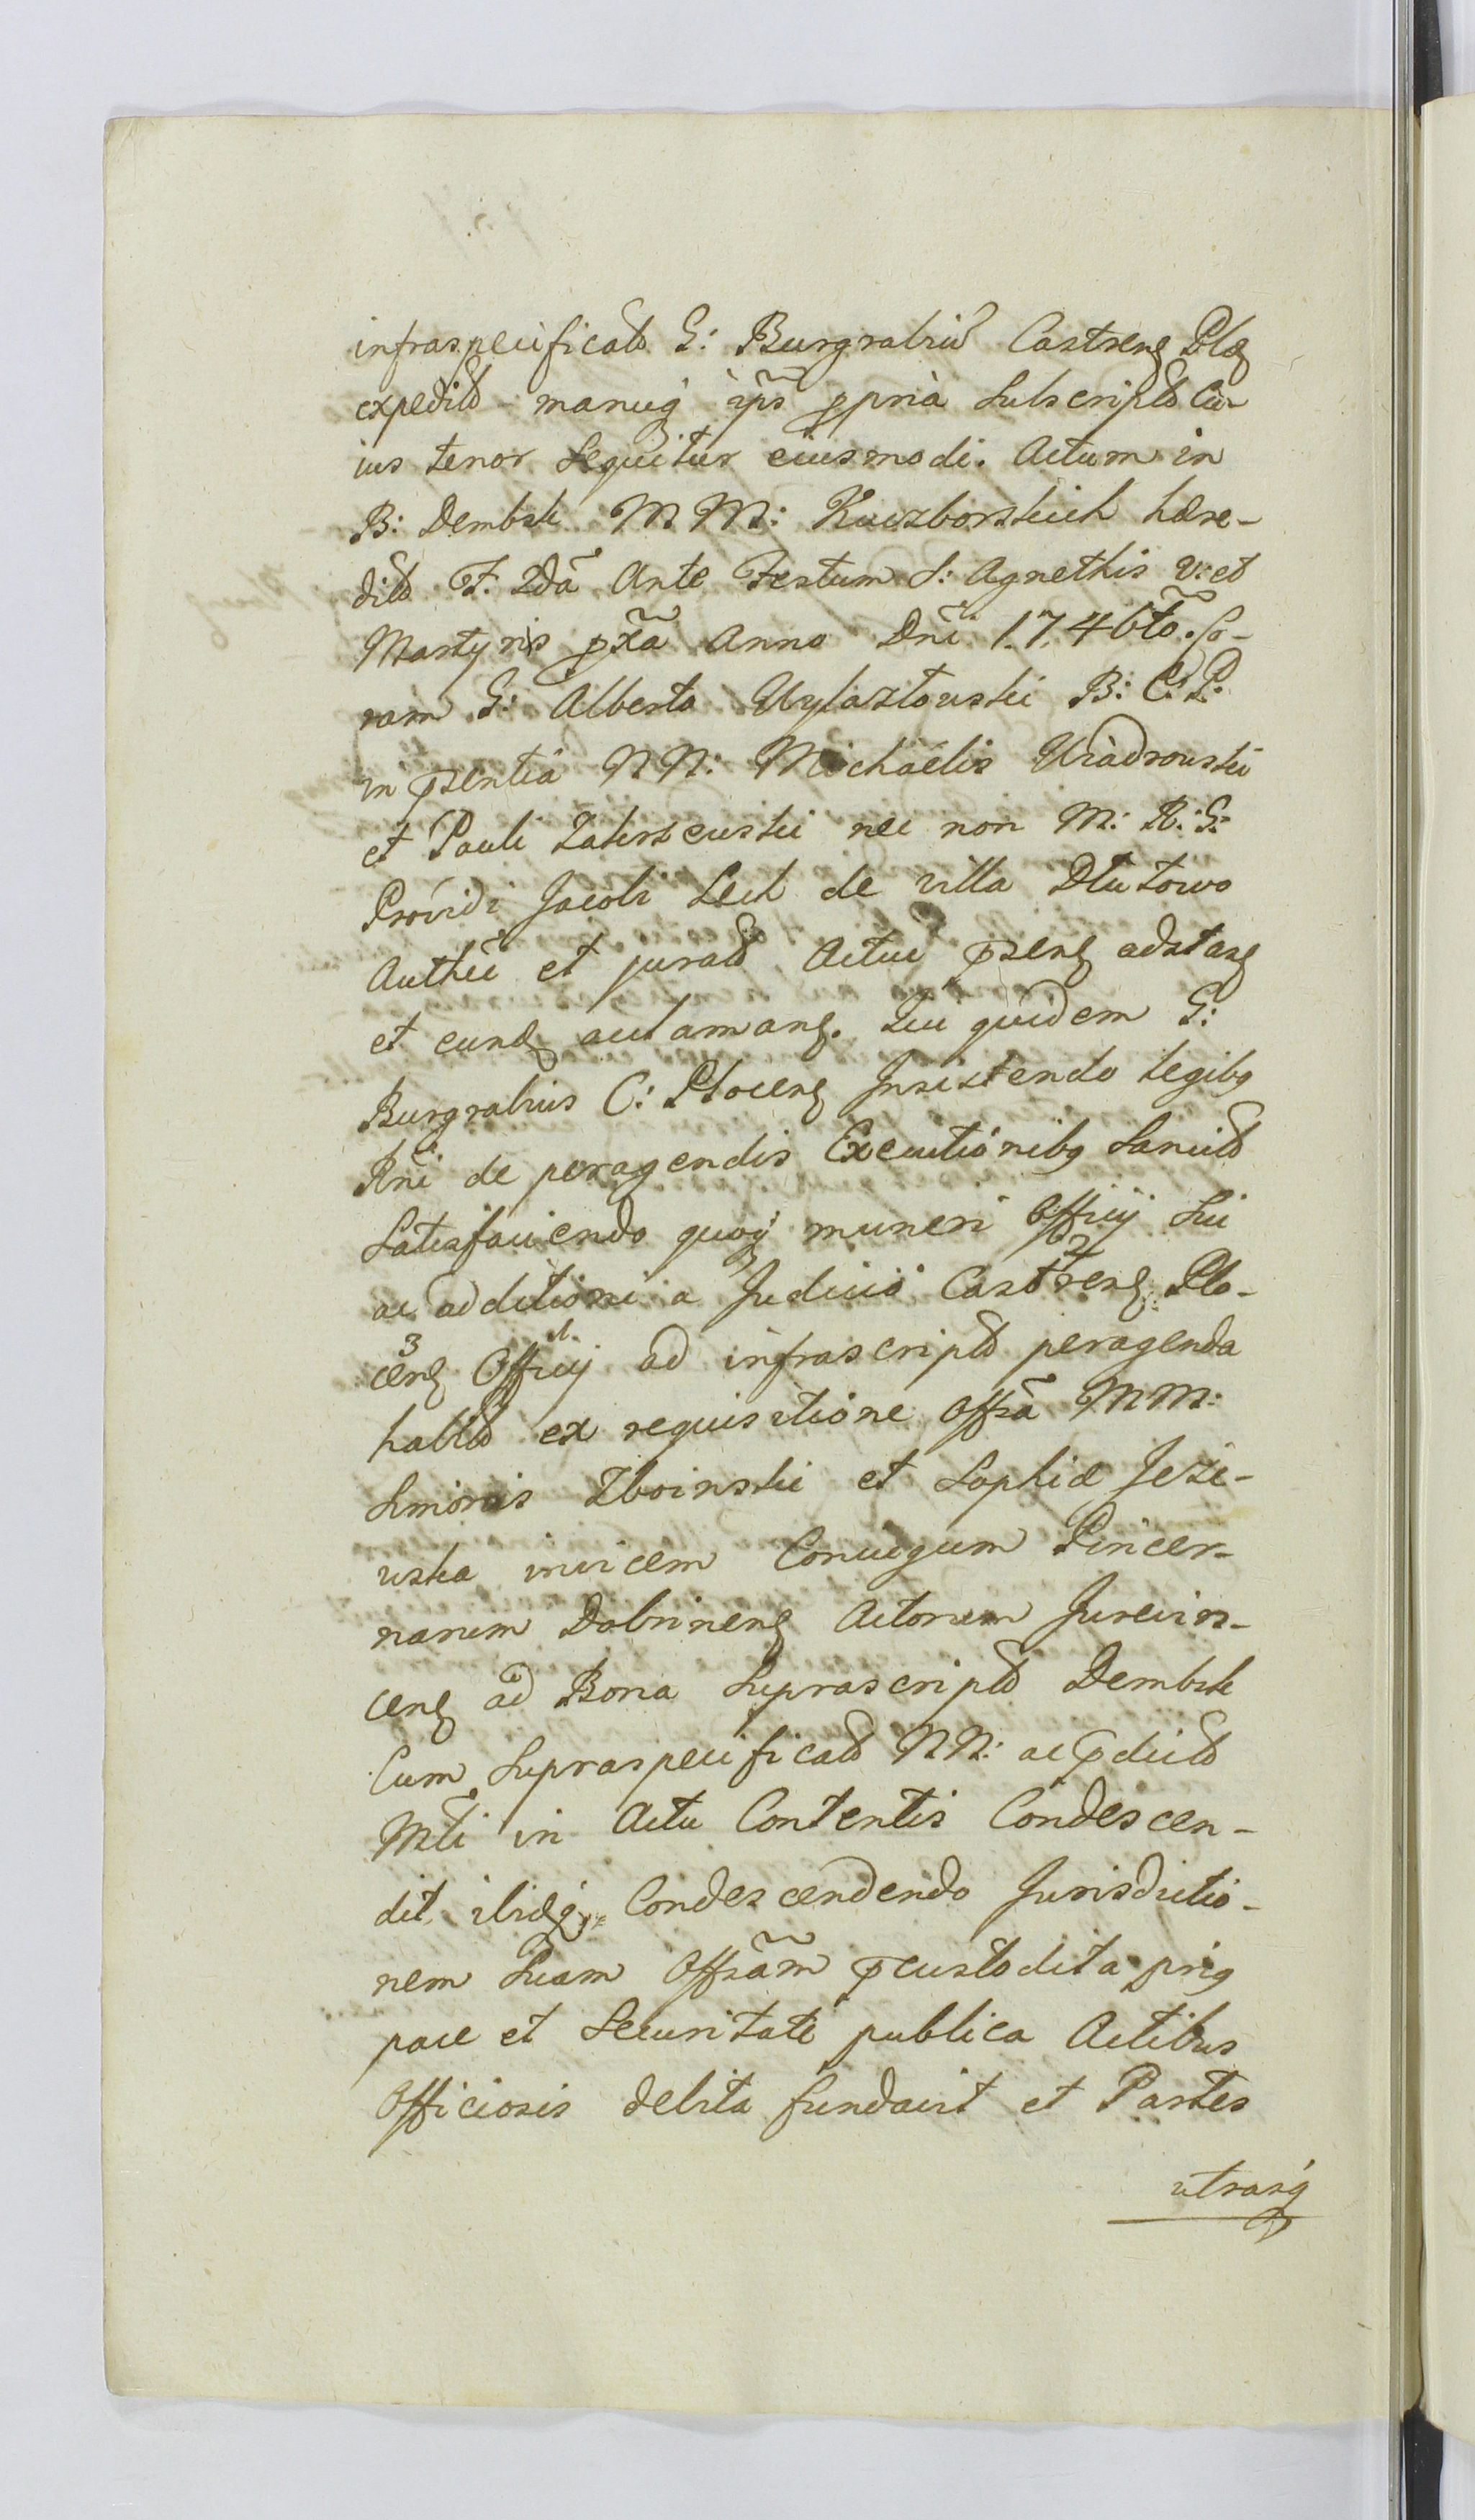 infraspecificato G: Burgrabio Castrens Ploc
expedito manuq ips ppria Subscripto Cu-
ius tenor Sequitur eiusmodi. Actum in
B: Dembsk MM: Kuczborskich hære-
dito F. 2da Ante Festum S: Agnethis V: et
Martyris pxa Anno Dni 1746to. Co-
ram G: Alberto Wylaztowski B: C: P:
in pzentia NN: Michaelis Wiadrowski
et Pauli Zakrzewski nec non M: R: G:
Providi Jacobi Lech de villa Dłutowo
Authci et jurato Actui pzens adstans
et eund aclamans. Qui quidem G:
Burgrabius C: Plocens Insistendo legibq
Rni de peragendis Executionibq Sancito
Satisfaciendo quoq muneri Officij Sui
ac additioni a Judicio Castrens 2 Plo-
cens 3 Officij 1. ad infrascripto peragenda
habito ex requisitione Offsa MM:
Simonis Zboinski et Sophiæ Jeze-
wska invicem Coniugum Pincer-
narum Dobrinens Actorum Jurevin-
cens ad Bona Suprascripto Dembsk
Cum Supraspecificato NN: ac pdicto
Mti in Actu Contentis Condescen-
dit ibidq Condescendendo Jurisdictio-
nem Suam Offsam pcustodita priq
pace et Securitate publica Actibus
Officiosis debita fundavit et Partes
utrasq